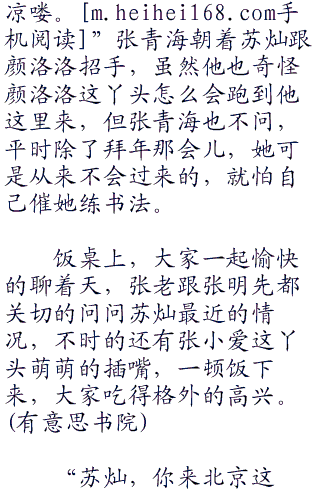 凉喽。[m.heihei168.com手
机阅读]”张青海朝着苏灿跟
颜洛洛招手，虽然他也奇怪
颜洛洛这丫头怎么会跑到他
这里来，但张青海也不问，
平时除了拜年那会儿，她可
是从来不会过来的，就怕自
己催她练书法。
饭桌上，大家一起愉快
的聊着天，张老跟张明先都
关切的问问苏灿最近的情
况，不时的还有张小爱这丫
头萌萌的插嘴，一顿饭下
来，大家吃得格外的高兴。
(有意思书院)
“苏灿，你来北京这